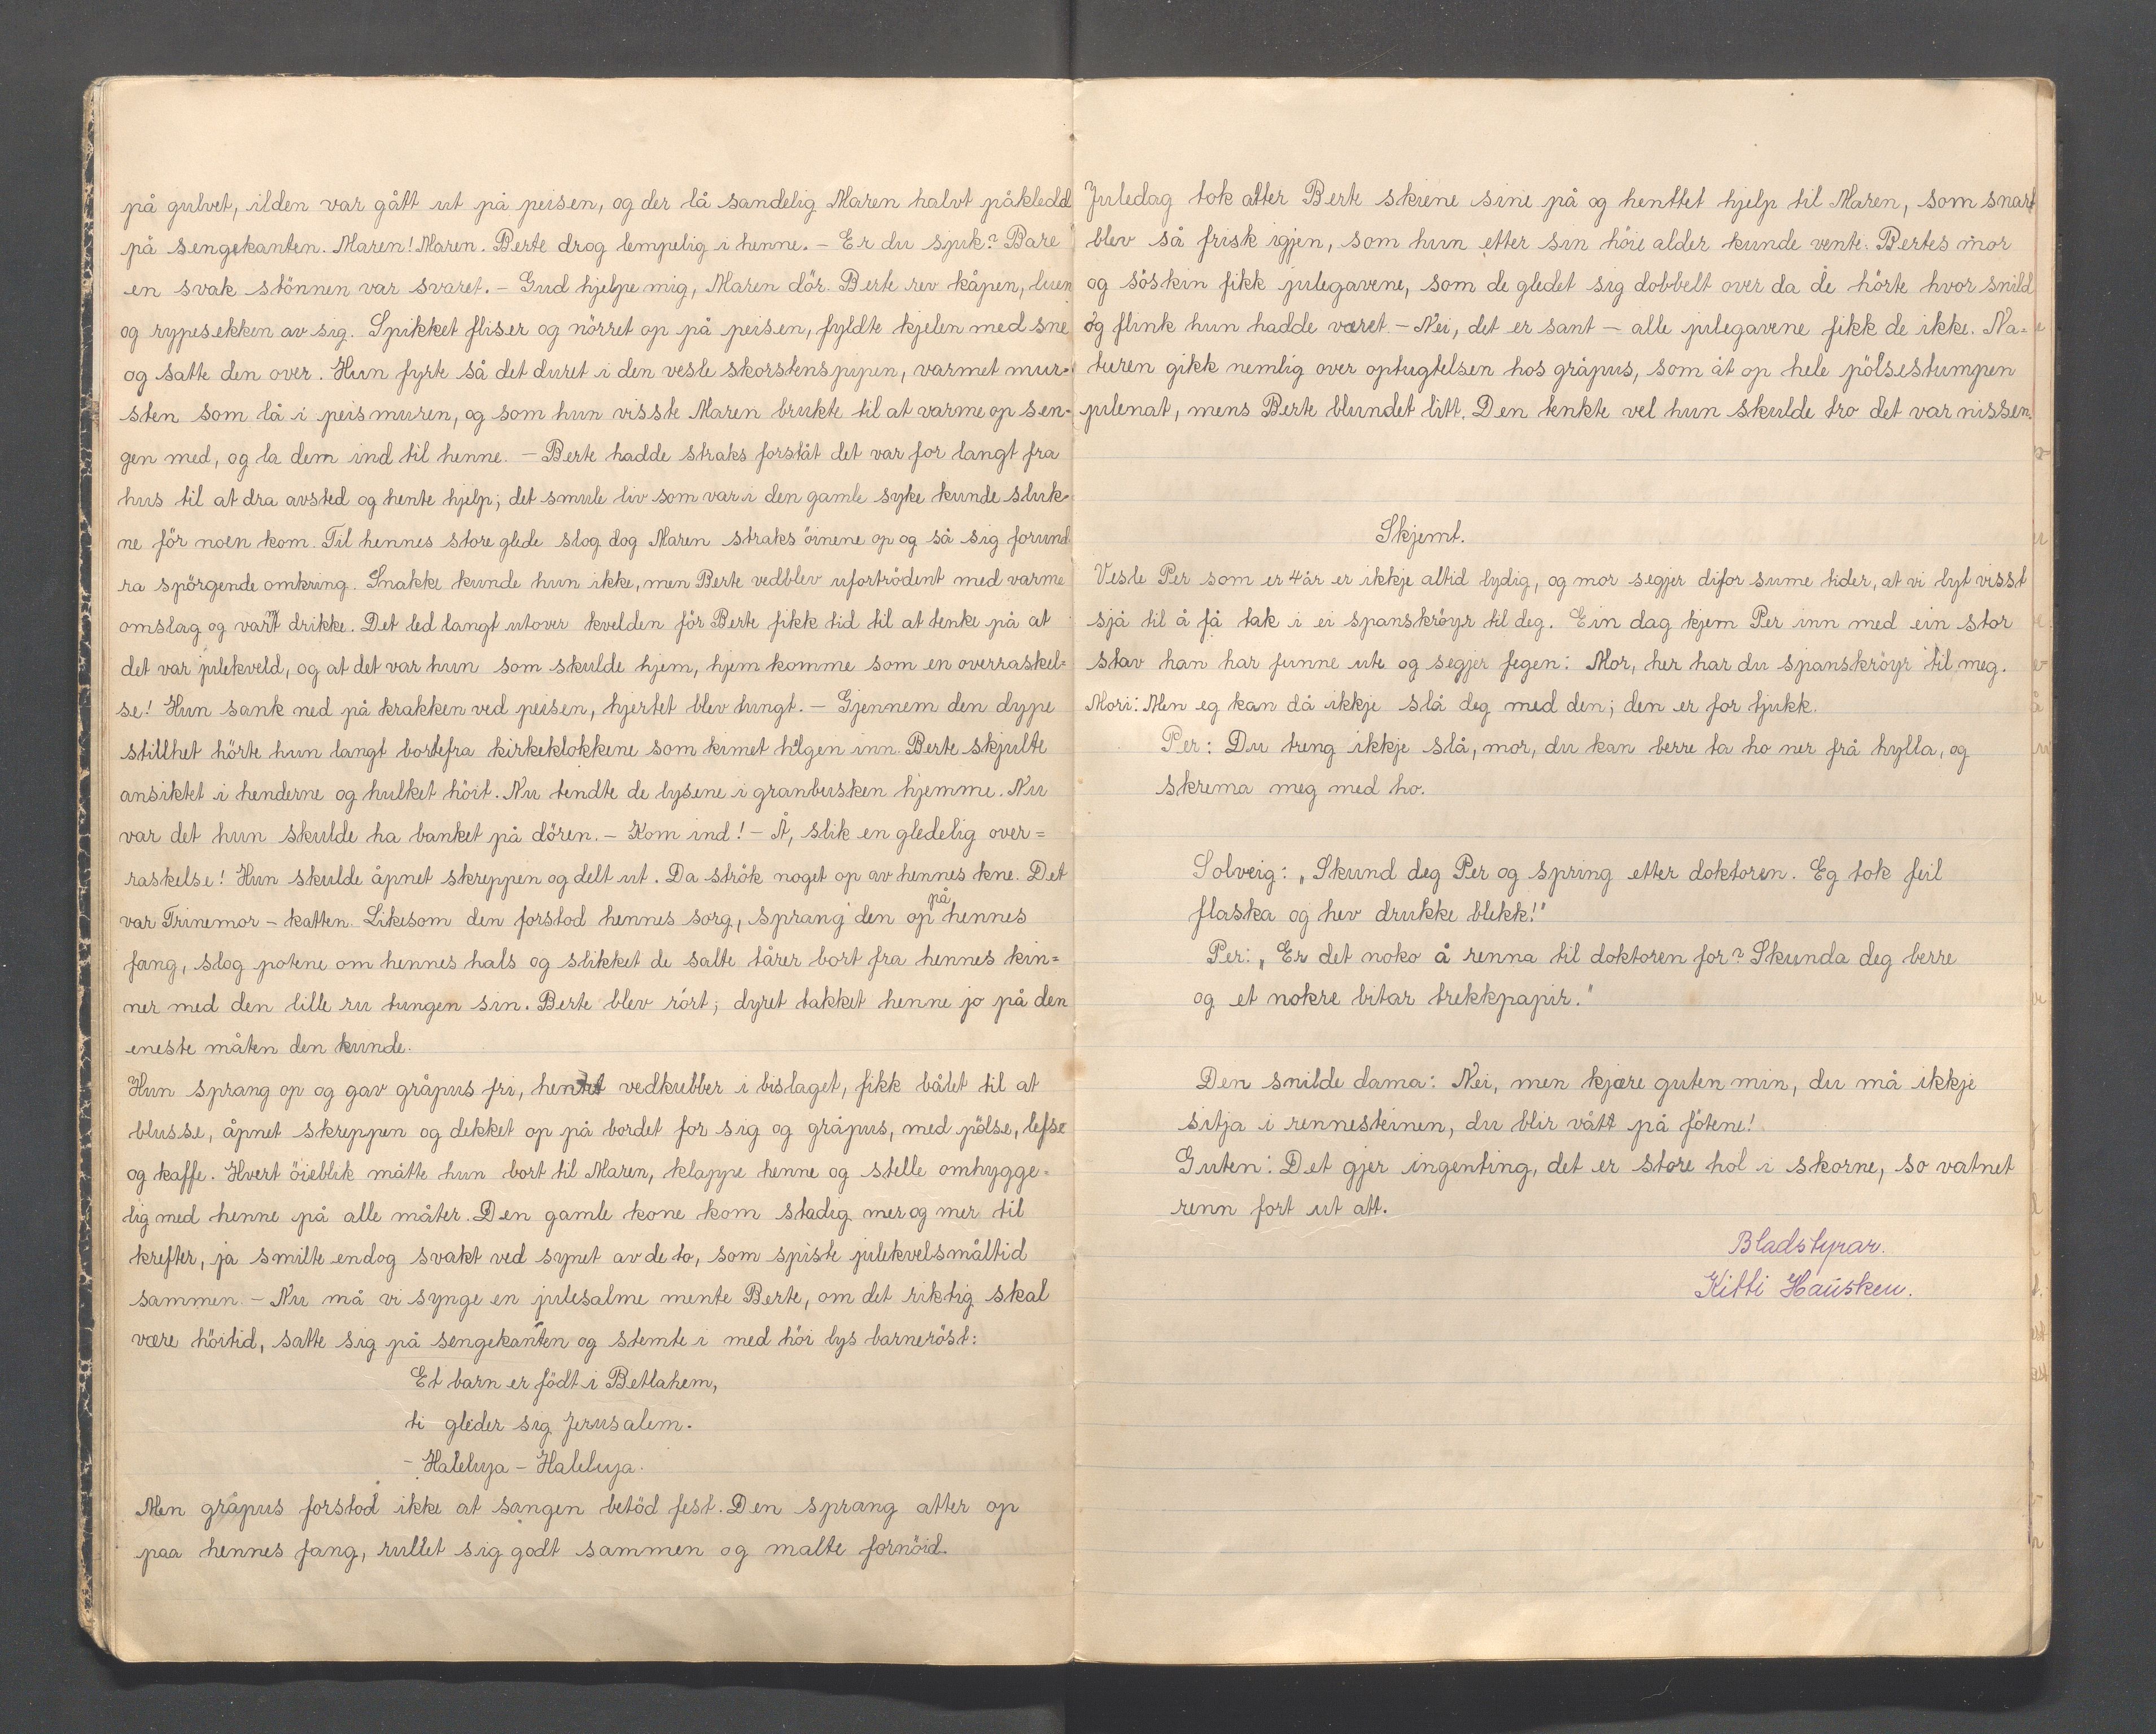 på gulvet, ilden var gått ut på peisen, og der lå sandelig Maren halvt påkledd
på sengekanten. Maren! Maren. Berte drog lempelig i henne. – Er du sjuk? Bare
en svak stönnen var svaret. – Gud hjelpe mig, Maren dör. Berte rev kåpen, luen
og rypesekken av sig. Spikket fliser og nörret op på peisen, fyldte kjelen med sne
og satte den over. Hun fyrte så det duret i den vesle skorstenspipen, varmet mur-
sten som lå i peismuren, og som hun visste Maren brukte til at varme op sen-
gen med, og la dem ind til henne. – Berte hadde straks forståt det var for langt fra
hus til at dra avsted og hente hjelp; det smule liv som var i den gamle syke kunde sluk-
ne för noen kom. Til hennes store glede slog dog Maren straks öinene op og så sig forund
ra spörgende omkring. Snakke kunde hun ikke, men Berte vedblev ufortrödent med varme
omslag og varmt drikke. Det led langt utover kvelden för Berte fikk tid til at tenke på at
det var julekveld, og at det var hun som skulde hjem, hjem komme som en overraskel-
se! Hun sank ned på krakken ved peisen, hjertet blev tungt. – Gjennem den dype
stillhet hörte hun langt bortefra kirkeklokkene som kimet helgen inn. Berte skjulte
ansiktet i henderne og hulket höit. Nu tendte de lysene i granbusken hjemme. Nu
var det hun skulde ha banket på dören. – Kom ind! – Å, slik en gledelig over=
raskelse! Hun skulde åpnet skreppen og delt ut. Da strök noget op av hennes kne. Det
var Trinemor – katten. Likesom den forstod hennes sorg, sprang den op på hennes
fang, slog potene om hennes hals og slikket de salte tårer bort fra hennes kin=
ner med den lille ru tungen sin. Berte blev rört; dyret takket henne jo på den
eneste måten den kunde.
Hun sprang op og gav gråpus fri, hentet vedkubber i bislaget, fikk bålet til at
blusse, åpnet skreppen og dekket op på bordet for sig og gråpus, med pölse, lefse
og kaffe. Hvert öieblik måtte hun bort til Maren, klappe henne og stelle omhygge-
lig med henne på alle måter. Den gamle kone kom stadig mer og mer til
krefter, ja smilte endog svakt ved synet av de to, som spiste julekvelsmåltid
sammen. – Nu må vi synge en julesalme mente Berte, om det riktig skal
være höitid, satte sig på sengekanten og stemte i med höi lys barneröst:
Et barn er födt i Betlahem,
ti gleder sig Jerusalem.
– Haleluja – Haleluja.
Men gråpus forstod ikke at sangen betöd fest. Den sprang atter op
paa hennes fang, rullet sig godt sammen og malte fornöid.
Juledag tok atter Berte skiene sine på og henttet hjelp til Maren, som snart
blev så frisk igjen, som hun etter sin höie alder kunde vente. Bertes mor
og söskin fikk julegavene, som de gledet sig dobbelt over da de hörte hvor snild
og flink hun hadde været. – Nei, det er sant – alle julegavene fikk de ikke. Na-
turen gikk nemlig over optugtelsen hos gråpus, som åt op hele pölsestumpen
julenat, mens Berte blundet litt. Den tenkte vel hun skulde tro det var nissen.
Skjemt.
Vesle Per som er 4 år er ikkje altid lydig, og mor segjer difor sume tider, at vi lyt visst
sjå til å få tak i ei spanskröyr til deg. Ein dag kjem Per inn med ein stor
stav han har funne ute og segjer fegen: Mor, her har du spanskröyr til meg.
Mori: Men eg kan då ikkje slå deg med den; den er for tjukk.
Per: Du treng ikkje slå, mor, du kan berre ta ho ner frå hylla, og
skrema meg med ho.
Solveig: „Skund deg Per og spring etter doktoren. Eg tok feil
flaska og hev drukke blekk!"
Per: „Er det noko å renna til doktoren for? Skunda deg berre
og et nokre bitar trekkpapir."
Den snilde dama: Nei, men kjære guten min, du må ikkje
sitja i rennesteinen, du blir vått på fötene!
Guten: Det gjer ingenting, det er store hol i skorne, so vatnet
renn fort ut att.
Bladstyrar.
Kitti Hausken.